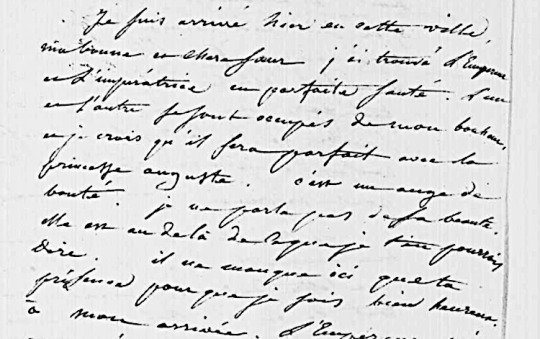 Je suis arrivé hier en cette ville,
ma bonne et chere sœur j'ai trouvé l'Empereur
et l'impératrice en parfaite santé. l'un
et l'autre se sont occupés de mon bonheur,
et je crois qu'il sera parfait avec la
princesse auguste. c'est un ange de
bonté. je ne parle pas de sa beauté.
elle est au delà de ce que je t'en pourrois
dire. il ne manque ici que ta
présence pour que je sois bien heureux.
à mon arrivée. l'Empereur